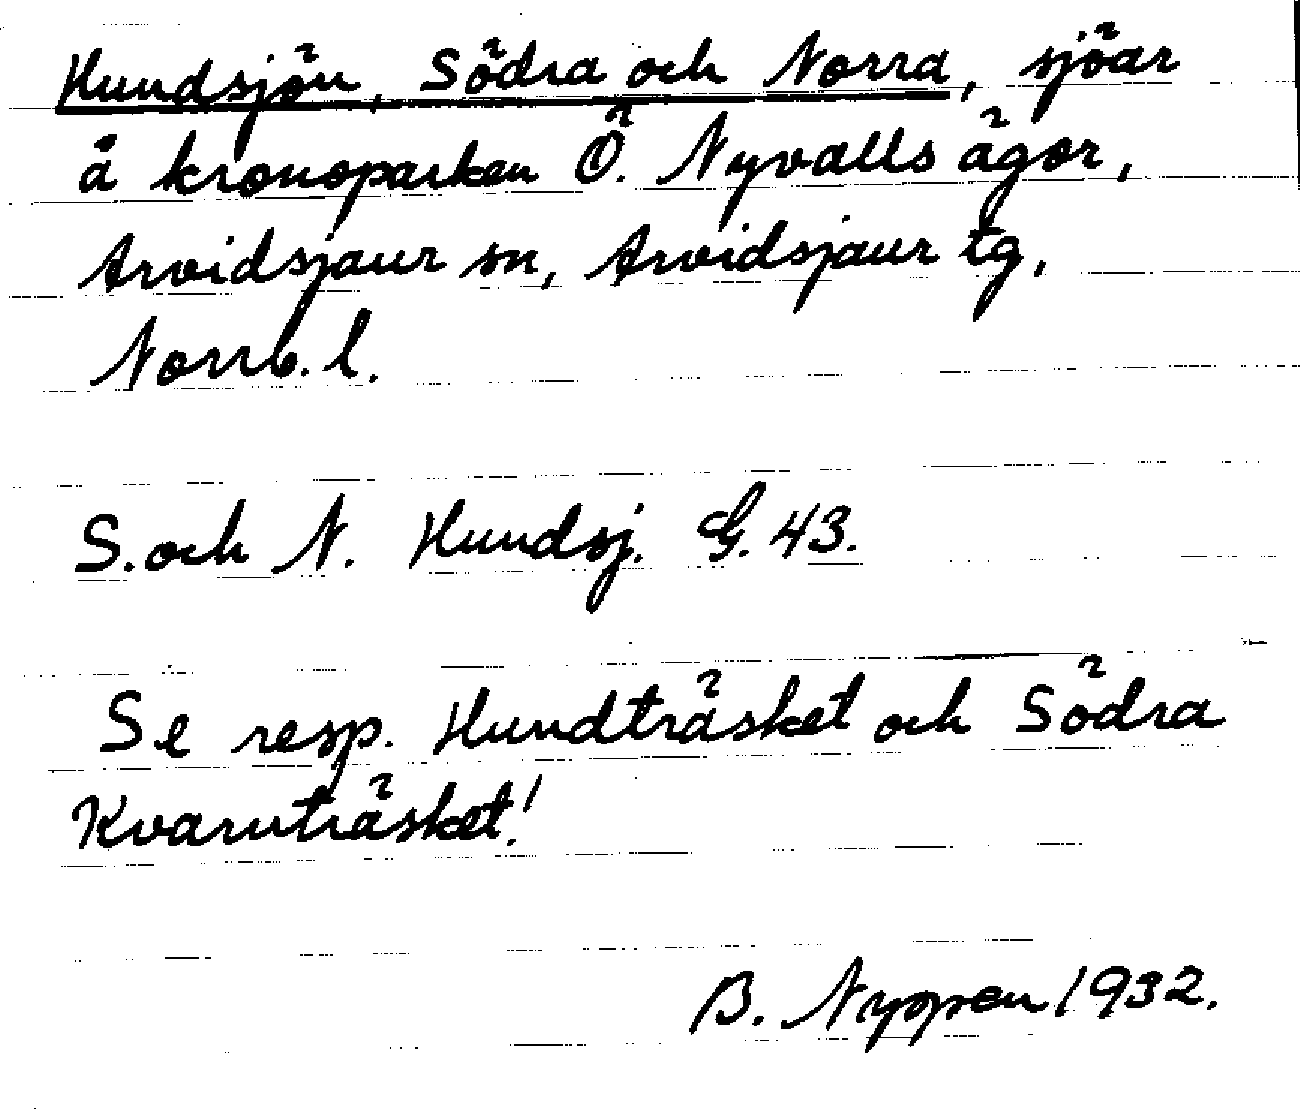 Hundsjön, Södra och Norra, sjöar
å kronoparken Ö. Nyvalls ägor,
Arvidsjaur sn, Arvidsjaur tg,
Norrb. l.
S. och N. Hundsj. G. 43.
Se resp. Hundträsket och Södra
Kvarnträsket!
B. Nyppen 1932.